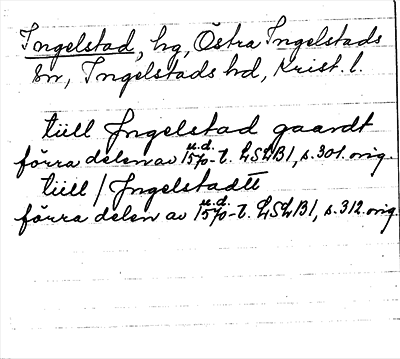 Ingelstad, hg, Östra Ingelstads
sn, Ingelstads hd, Krist. l.
tiill Jngelstad gaardt
förra delen av u.d. 1570-t. LSLB1, s.301. orig.
tiill / Jngelstadtt
förra delen av u.d. 1570-t. LSLB1, s.312. orig.